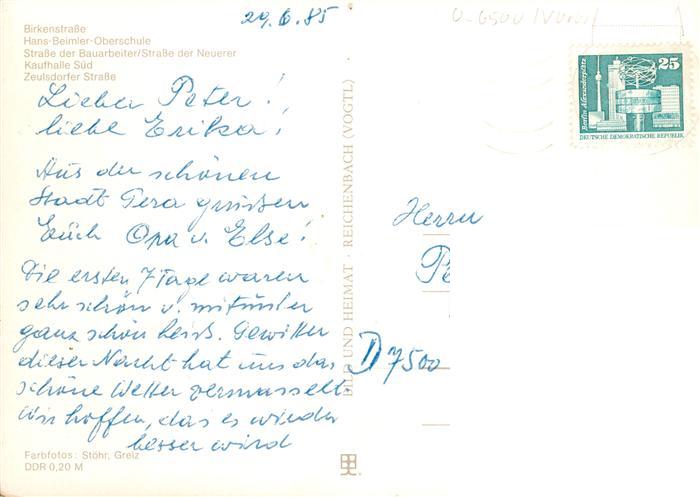 29.6.85
Birkenstraße
Hans-Beimler-Oberschule
Straße der Bauarbeiter/Straße der Neuerer
Kaufhalle Süd
Zeulsdorfer Straße
Lieber Peter!
liebe Erika!
Aus der schönen
Stadt Gera grüßen
Euch Opa u. Else!
Die ersten 7 Tage waren
sehr schön u. mitunter
ganz schön heiß. Gewitter
dieser Nacht hat uns das
schöne Wetter vermasselt.
Wir hoffen, das es wieder
besser wird
Farbfotos: Stöhr, Greiz
DDR 0,20 M
BILD UND HEIMAT · REICHENBACH (VOGTL)
Berlin, Alexanderplatz
25
DEUTSCHE DEMOKRATISCHE REPUBLIK
Herrn
Pe
D 7500